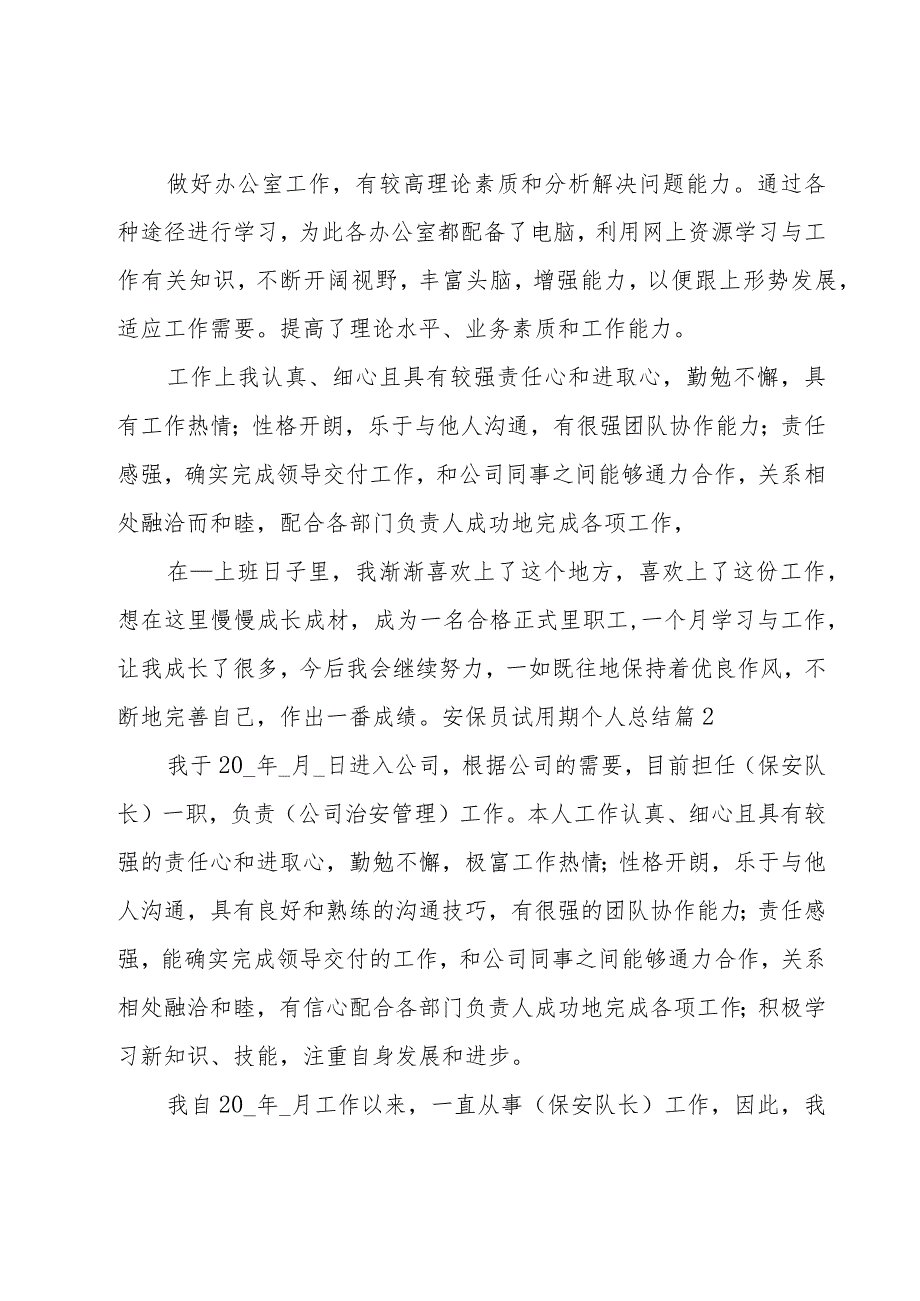 做好办公室工作，有较高理论素质和分析解决问题能力。通过各
种途径进行学习，为此各办公室都配备了电脑，利用网上资源学习与工
作有关知识，不断开阔视野，丰富头脑，增强能力，以便跟上形势发展，
适应工作需要。提高了理论水平、业务素质和工作能力。
工作上我认真、细心且具有较强责任心和进取心，勤勉不懈，具
有工作热情；性格开朗，乐于与他人沟通，有很强团队协作能力；责任
感强，确实完成领导交付工作，和公司同事之间能够通力合作，关系相
处融洽而和睦，配合各部门负责人成功地完成各项工作，
在—上班日子里，我渐渐喜欢上了这个地方，喜欢上了这份工作，
想在这里慢慢成长成材，成为一名合格正式里职工,一个月学习与工作，
让我成长了很多，今后我会继续努力，一如既往地保持着优良作风，不
断地完善自己，作出一番成绩。安保员试用期个人总结篇2
我于20_年_月_日进入公司，根据公司的需要，目前担任（保安队
长）一职，负责（公司治安管理）工作。本人工作认真、细心且具有较
强的责任心和进取心，勤勉不懈，极富工作热情；性格开朗，乐于与他
人沟通，具有良好和熟练的沟通技巧，有很强的团队协作能力；责任感
强，能确实完成领导交付的工作，和公司同事之间能够通力合作，关系
相处融洽和睦，有信心配合各部门负责人成功地完成各项工作；积极学
习新知识、技能，注重自身发展和进步。
我自20_年_月工作以来，一直从事（保安队长）工作，因此，我